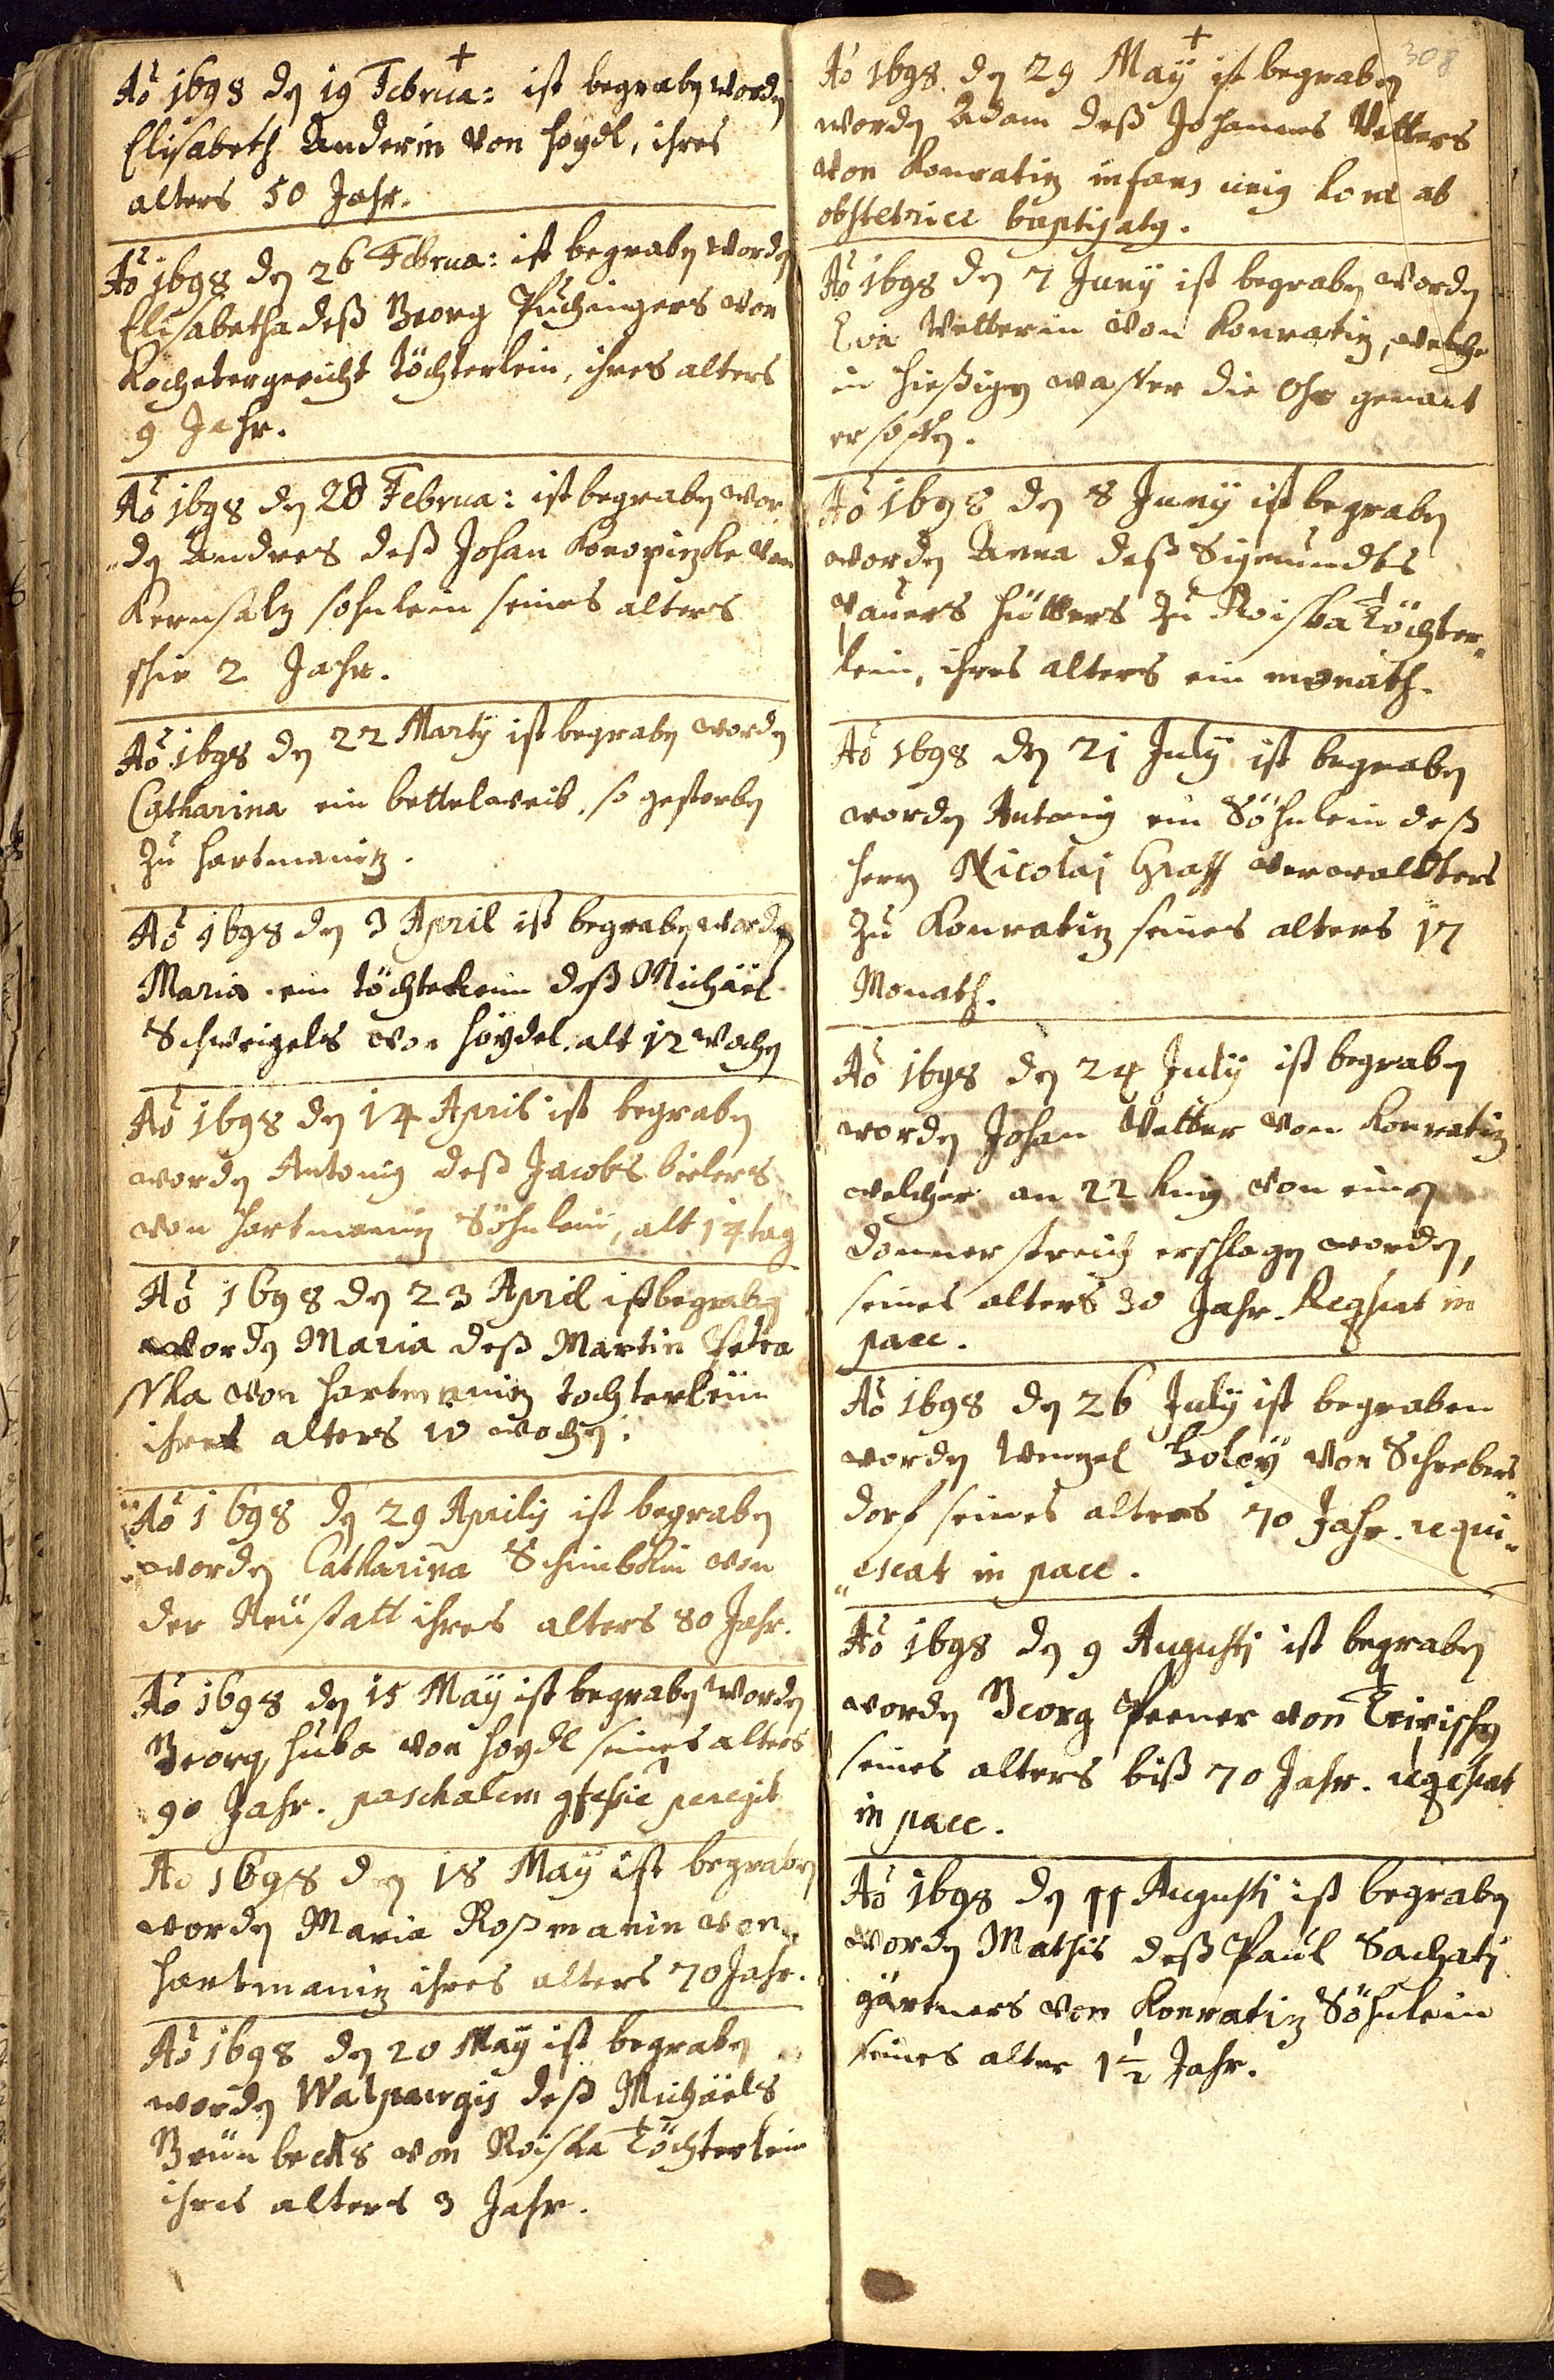 Aõ 1698 dẽ 19 Februa: ist begrabẽ wordẽ
Elisabeth Anderin von Hoydl, ihres
alters 50 Jahr.
Aõ 1698 den 26 Februa: ist begrabẽ wordẽ
Elisabetha deß Georg Puchingers von
Kochetergericht töchterlein, ihres alters
9 Jahr.
Aõ 1698 dẽ 28 Februa: ist begrabẽ wor
dẽ Andres deß Johan Konopitzke von
Kernsaltz söhnlein seines alters
2 Jahr.
Aõ 1698 dẽ 22 Martij ist begrabẽ wordẽ
Catharina ein bettelweib, so gestorbẽ
zu Hartmanitz.
Aõ 1698 dẽ 3 April ist begrabẽ wordẽ
Maria ein töchterlein deß Michäel
Schweigels von Hoydel, alt 12 wochẽ
Aõ 1698 dẽ 14 April ist begrabẽ
wordẽ Antonig deß Jacobs bielers
von Hartmanitz Söhnlein, alt 14 tag
Aõ 1698 dẽ 23 April ist begrabẽ
wordẽ Maria deß Martin Petra
von Hartmanitz tochterlein
ihres alters 10 wochẽ.
Aõ 1698 dẽ 29 Aprilis ist begrabẽ
wordẽ Catharina Schimbölin von
der Neustatt ihres alters 80 Jahr.
Aõ 1698 dẽ 15 Maÿ ist begrabẽ wordẽ
Georg Huba von Hoydl seines alters
90 Jahr. paschalem peregit
Ao 1698 dẽ 18 Maÿ ist begrabẽ
wordẽ Maria Roßmanin von
Hartmanitz ihres alters 70 Jahr.
Aõ 1698 dẽ 20 Maÿ ist begrabẽ
wordẽ Walpurgis deß Michäels
Grünbecks von Roiska Töchterlein
ihres alters 3 Jahr.
308
Aõ 1698 dẽ 29 Maÿ ist begrabẽ
wordẽ Adam deß Johannes Vetters
von Konratitz infans ab
obstetrice baptizatg.
Aõ 1698 dẽ 7 Junÿ ist begrabẽ wordẽ
Eva Vetterin von Konratitz, welche
in hießigẽ waßer die genant
ersoffẽ.
Aõ 1698 dẽ 8 Junÿ ist begrabẽ
wordẽ Anna deß Sigmundts
Pauers hütters zu Roiska Töchter
lein, ihres alters ein monath.
Aõ 1698 dẽ 21 Julÿ ist begrabẽ
wordẽ Antonig ein Söhnlein deß
herrn Nicolaj Graff verwaltters
zu Konratitz seines alters 17
Monath.
Aõ 1698 dẽ 24 Julÿ ist begrabẽ
wordẽ Johan Vetter von Konratitz
welcher an 22 von einẽ
donnerstreich erschlagẽ wordẽ,
seines alters 30 Jahr. Reqscat in
pace.
Aõ 1698 dẽ 26 Julÿ ist begraben
wordẽ Wentzel Holoÿ von Schrebers
dorf seines alters 70 Jahr. requi
escat in pace.
Aõ 1698 dẽ 9 Augusti ist begrabẽ
wordẽ Georg Peener von
seines alters biß 70 Jahr. reqescat
in pace.
Aõ 1698 dẽ 11 Augusti ist begrabẽ
wordẽ Mathis deß Paul Sachatj
gärtners von Konratitz Söhnlein
seines alter 1½ Jahr.